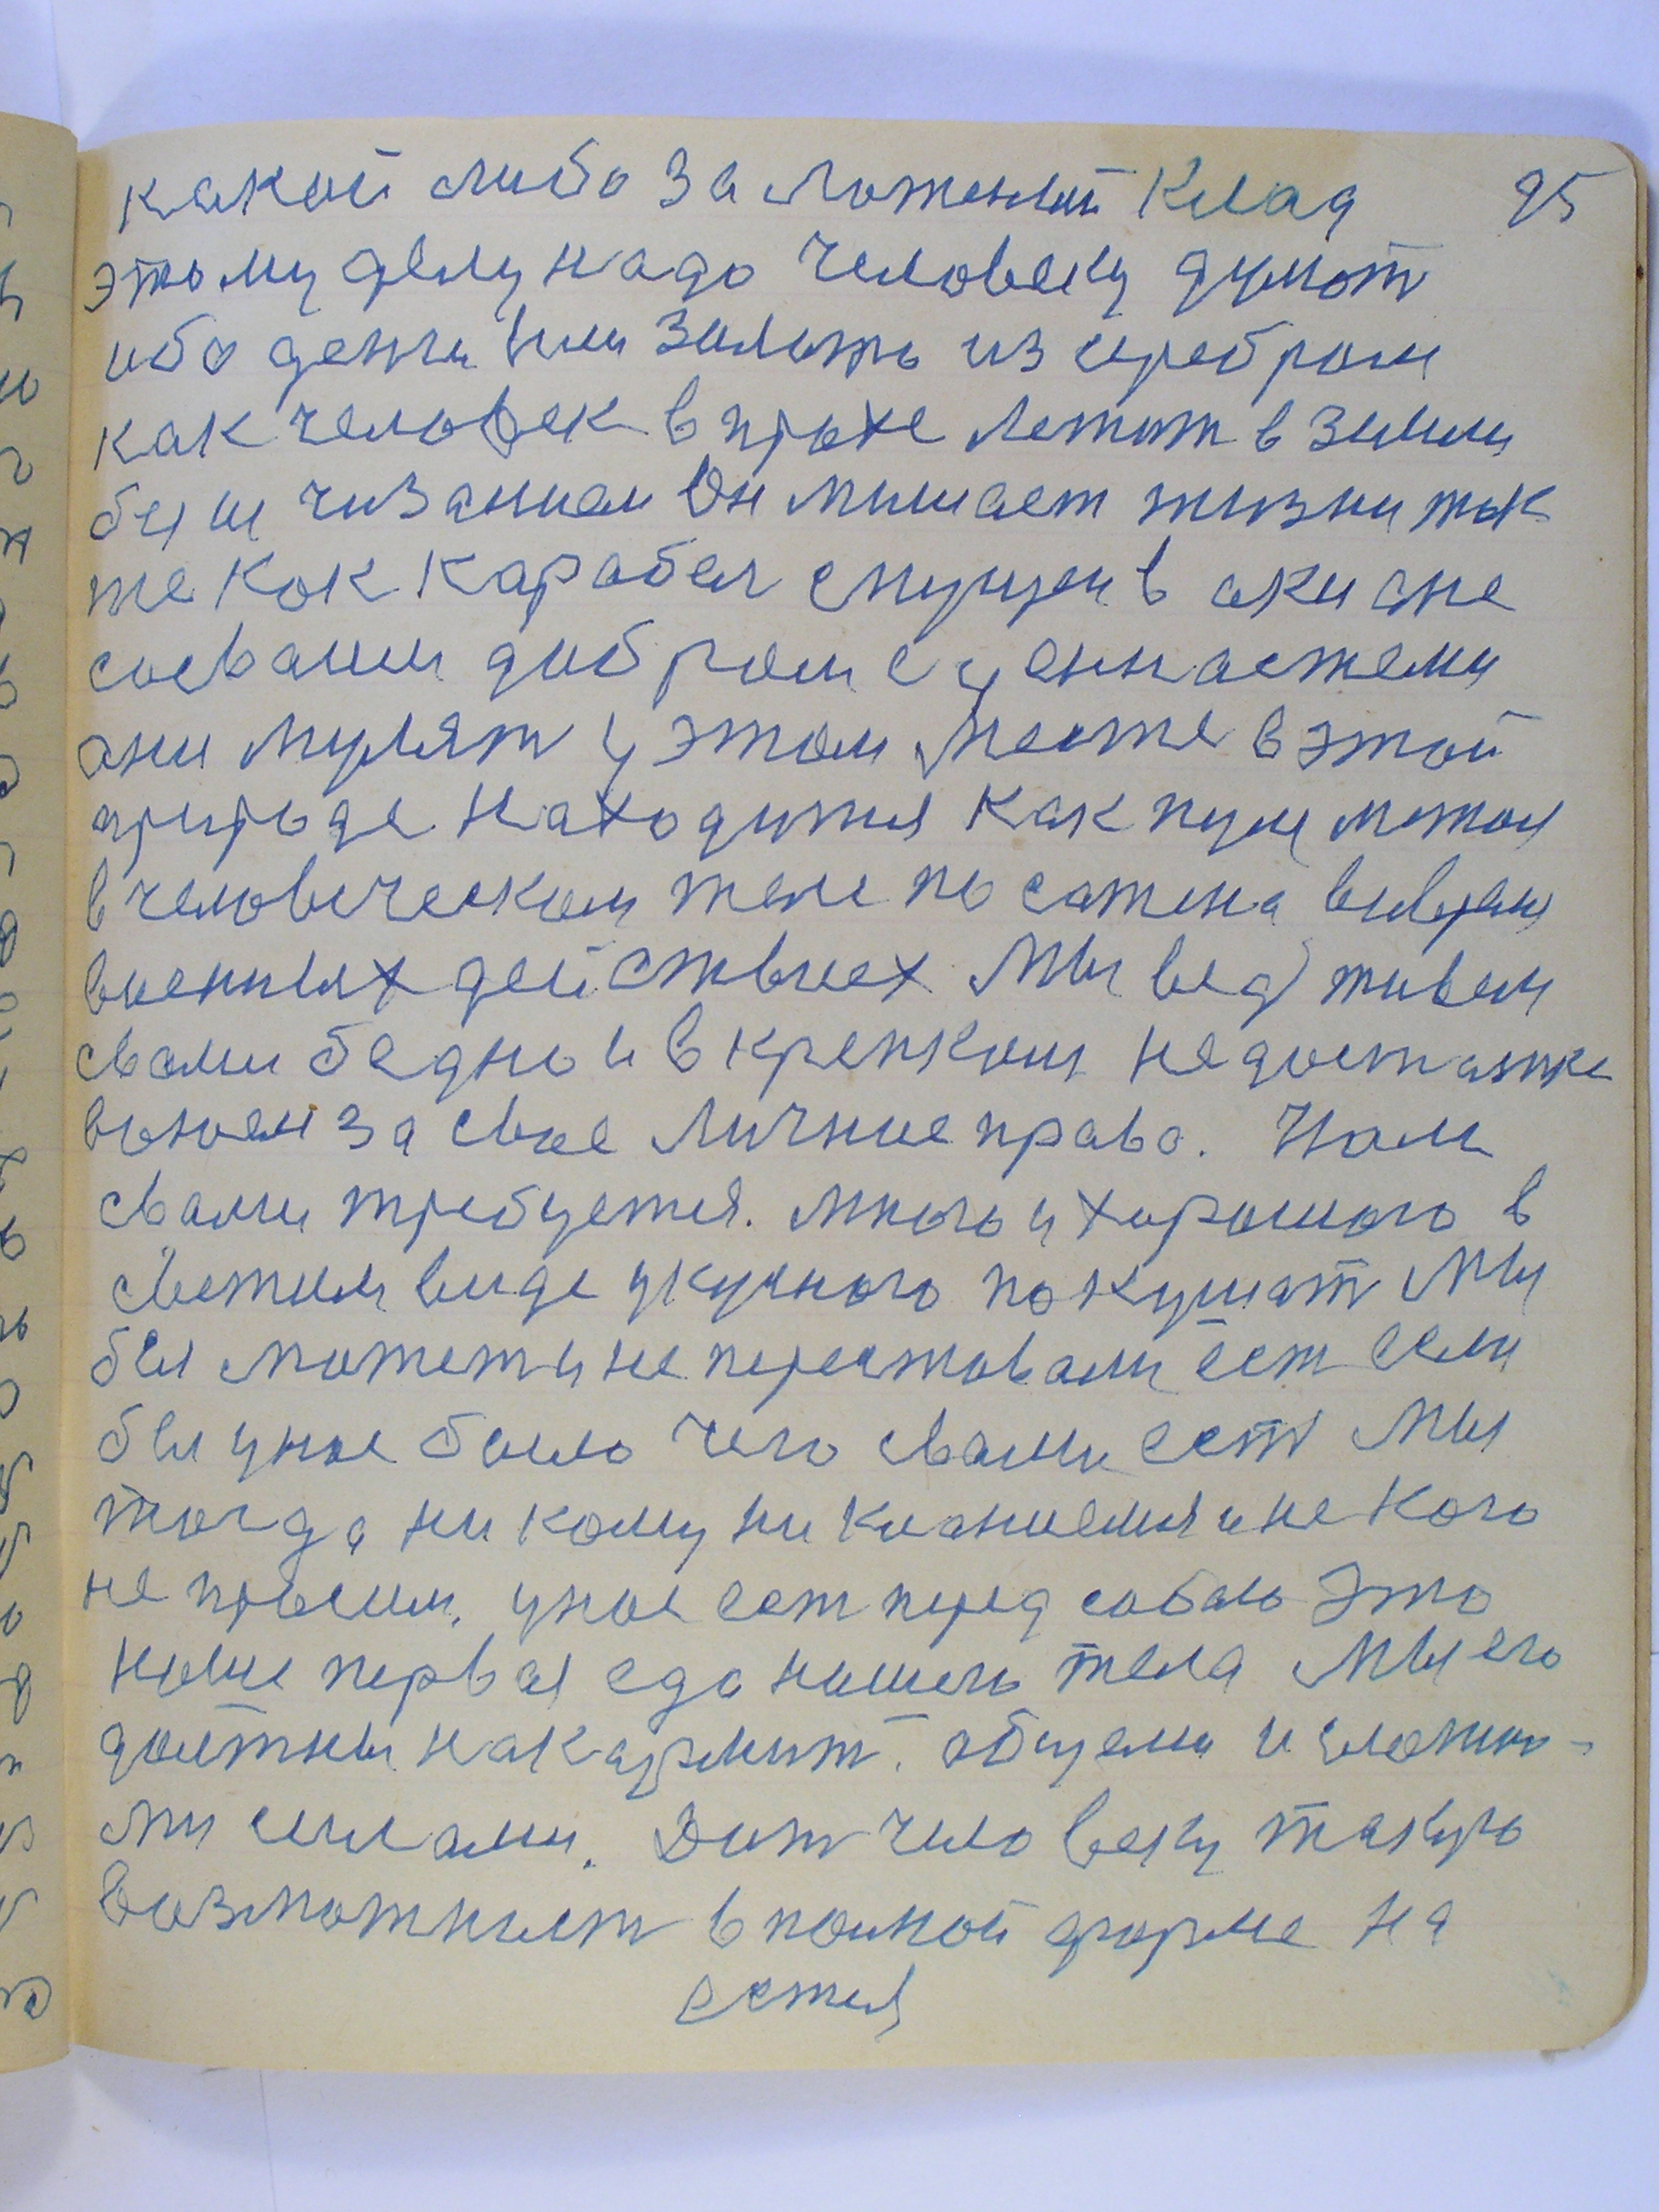 какой либо заложеный клад 95
этому делу надо человеку думат
ибо денги или золото из серебром
как человек в прохе лежит в земли
он лишает жизни так
же как карабел в акиане
совсеми добром с ценностеми
они у этом месте в этой
природе находится как пуля
в человеческом теле по сажена время
военных действиех Мы вед живем
свами бедно и в крепком недостатке
воюем за свое личное право. Нам
свами требуется. много и хорошего в
свежим виде укусного покушат Мы
бы может и не перестовали ест если
бы унас было чего свами ест Мы
тогда ни кому ни кланяемся и не кого
не просим. унас ест перед собою Это
наше первая еда нашего тела Мы его
должны накармит. общеми
ми силами. Дат человеку такую
возможност в полной форме на
естся